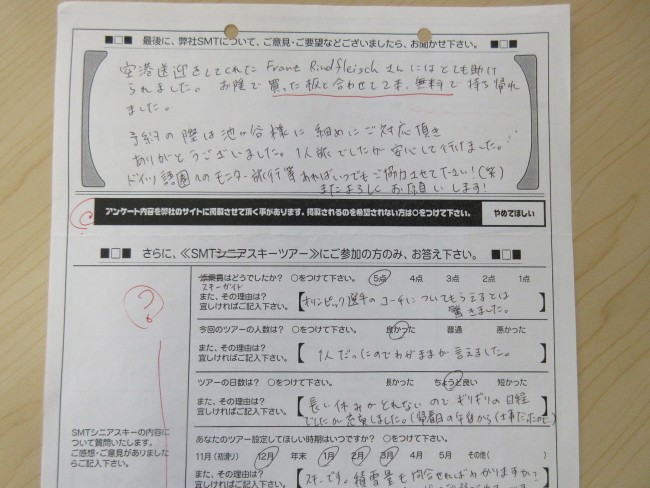 ■□■ 最後に、弊社SMTについて、ご意見・ご要望などございましたら、お聞かせ下さい。 ■□■
空港送迎をしてくれた Franz Rindfleisch さんにはとても助け
られました。 お陰で 買った板と合わせて2本、無料で 持ち帰れ
ました。
予約の際は池ヶ谷様に 細めにご対応頂き
ありがとうございました。1人旅でしたが 安心して行けました。
ドイツ語圏へのモニター旅行等あればいつでもご協力させて下さい!(笑)
またよろしく お願いします!
アンケート内容を弊社のサイトに掲載させて頂く事があります。掲載されるのを希望されない方は○をつけて下さい。 やめてほしい
■□■ さらに、≪SMTシニアスキーツアー≫にご参加の方のみ、お答え下さい。 ■□■
添乗員はどうでしたか? ○をつけて下さい。 5点 4点 3点 2点 1点
スキーガイド
また、その理由は?
宜しければご記入下さい。
オリンピック選手のコーチについてもらえるとは
驚きました。
今回のツアーの人数は? ○をつけて下さい。 良かった 普通 悪かった
また、その理由は?
宜しければご記入下さい。
1人だったのでわがままが言えました。
ツアーの日数は? ○をつけて下さい。 長かった ちょうど良い 短かった
また、その理由は?
宜しければご記入下さい。
長い休みがとれないのでギリギリの日程
でしたが充実しました。(帰着日の午後から仕事だったので)
SMTシニアスキーの内容に
ついて質問いたします。
ご感想・ご意見がありました
らご記入下さい。
あなたのツアー設定してほしい時期はいつですか? ○をつけて下さい。
11月(初滑り) 12月 年末 1月 2月 3月 4月 5月 その他(
また、その理由は?
積雪量も問合せればわかりますか?